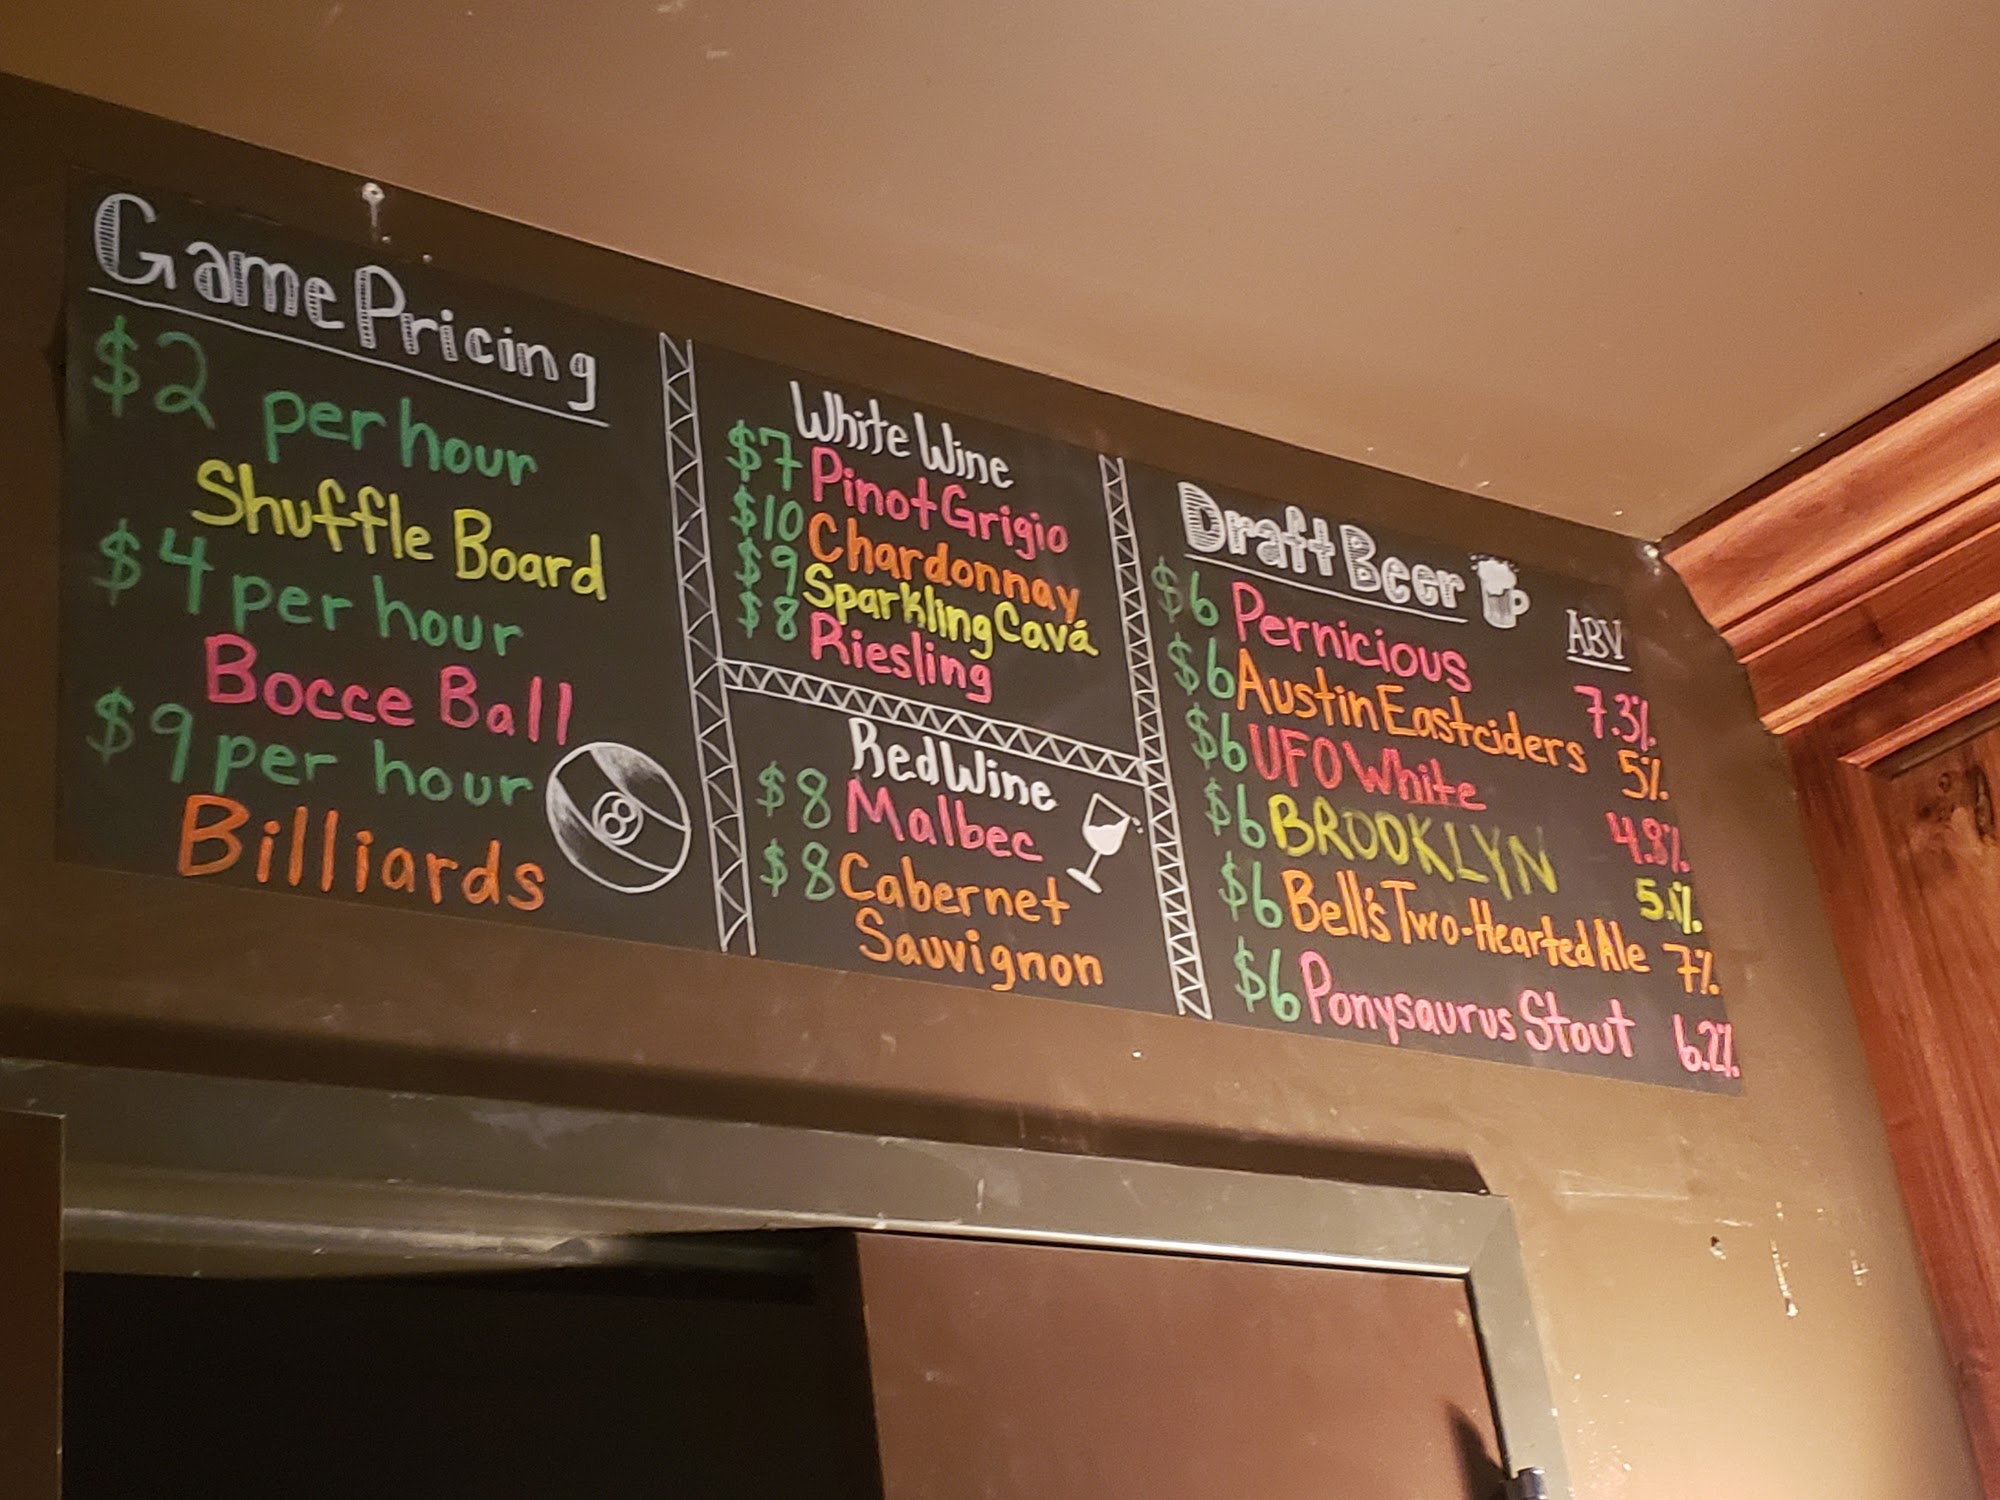 Game Pricing
$2 per hour
Shuffle Board
$4 per hour
Bocce Ball
$9 per hour
Billiards
8
White Wine
$7 Pinot Grigio
$10 Chardonnay
$9 Sparkling Cavá
$8 Riesling
Red Wine
$8 Malbec
$8 Cabernet
Sauvignon
Draft Beer
ABV
$6 Pernicious 7.3%
$6 Austin Eastciders 5%
$6 UFO White 4.8%
$6 BROOKLYN 5.1%
$6 Bell's Two-Hearted Ale 7%
$6 Ponysaurus Stout 6.2%